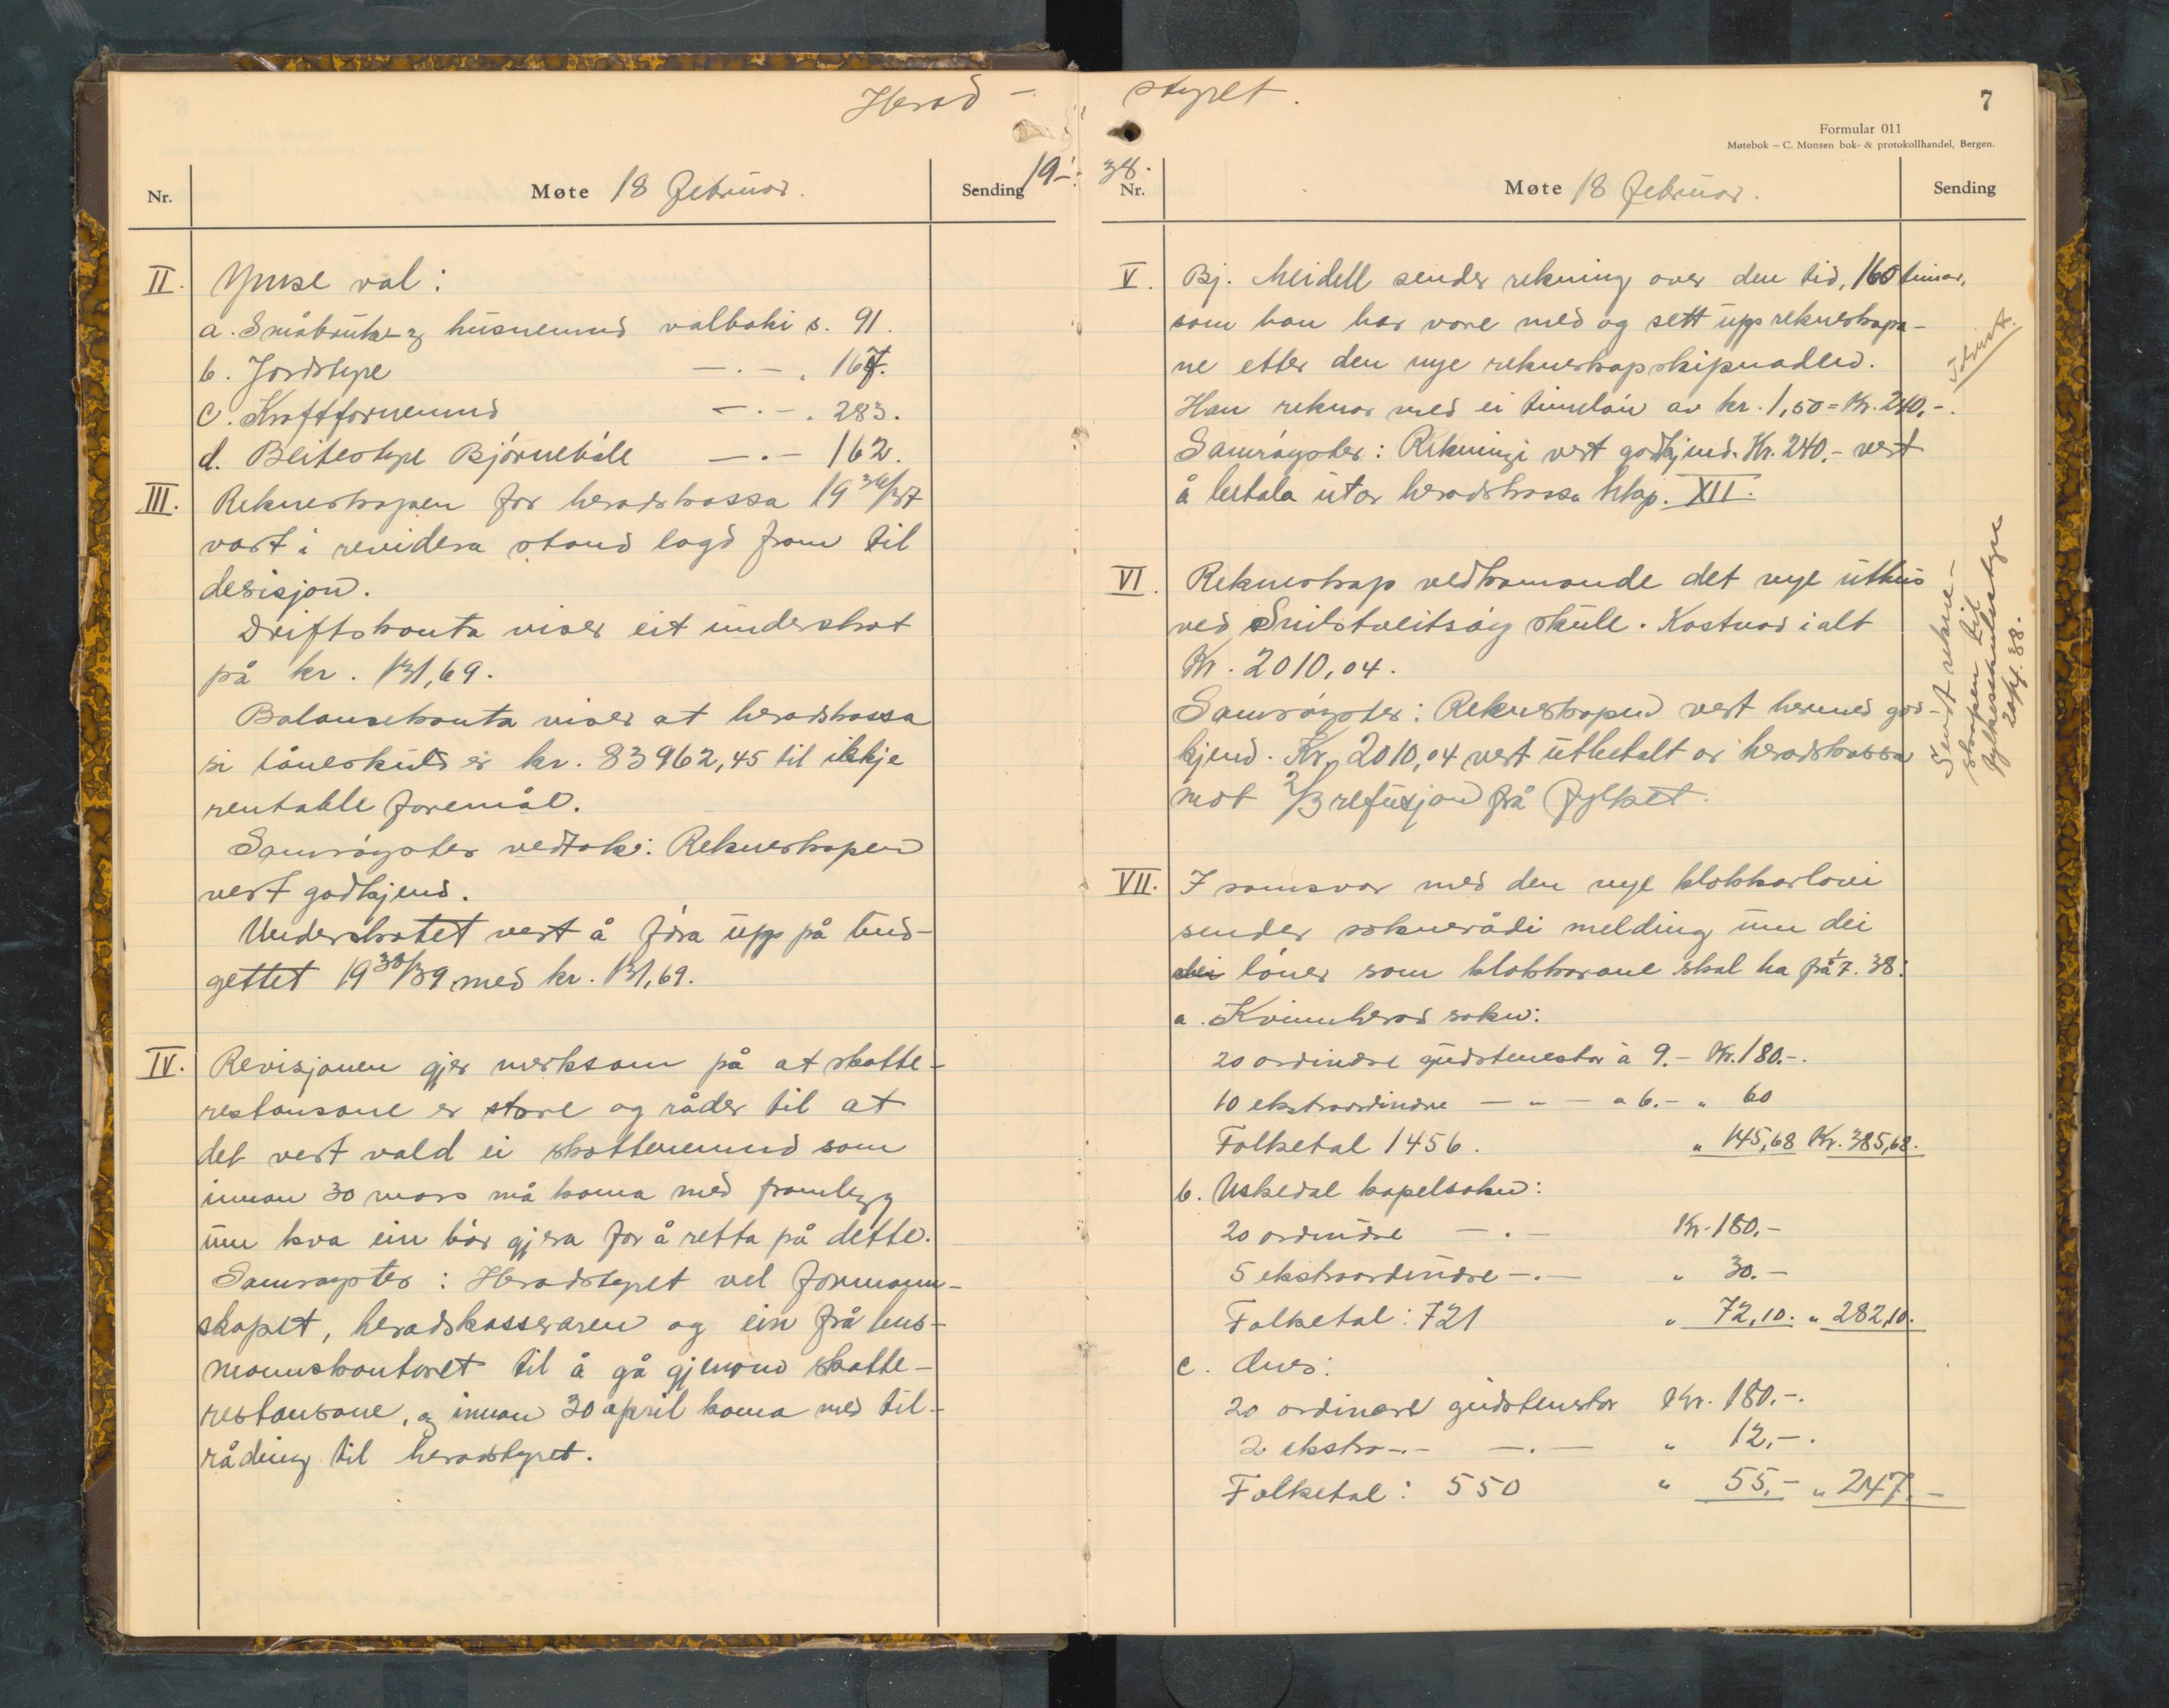 Herad –
Møte 18 februar.
Nr.
Sending
19–
II. Ymse val:
a. Småbruks- og husnemnd valboki s. 91.
b. Jordstyre — . — . 167.
c. Kraftfornemnd — . — . 283.
d. Beitestyre Bjørnebåle — . — 162.
III. Rekneskapen for heradskassa 1936/37
vart i revidera stand lagd fram til
desisjon.
Driftskonta viser eit underskot
på kr. 131,69.
Balansekonta viser at heradskassa
si låneskuld er kr. 83962,45 til ikkje
rentable foremål.
Samrøystes vedtok: Rekneskapen
vert godkjend.
Underskotet vert å föra upp på bud-
gettet 1938/39 med kr. 131,69.
IV. Revisjonen gjer merksam på at skatte-
restansane er store og råder til at
det vert vald ei skattenemnd som
innan 30 mars må koma med framlegg
um kva ein bör gjera for å retta på dette.
Samrøystes: Heradstyret vel formann-
skapet, heradskasseraren og ein frå lens-
mannskontoret til å gå gjenom skatte-
restansane, og innan 30 april koma med til-
råding til heradstyret.
styret.
7
Formular 011
Møtebok – C. Monsen bok- & protokollhandel, Bergen.
38.
Nr.
Møte 18 februar.
Sending
V. Bj. Meidell sender rekning over den tid, 160 timar,
som han har vore med og sett upp rekneskapa-
ne etter den nye rekneskapskipnaden.
Han reknar med ei timeløn av kr. 1,50 = Kr. 240,-.
Samrøystes: Rekningi vert godkjend. Kr. 240.- vert
å betala utor heradskassa kap. XII.
VI. Rekneskap vedkomande det nye uthus
ved Snilstveitsøy skule. Kostnad i alt
Kr. 2010,04.
Samrøystes: Rekneskapen vert hermed god-
kjend. Kr. 2010,04 vert utbetalt or heradskassa
mot 2/3 refusjon frå fylket.
Sendt rekne-
skapen til
fylkesskulestyre
20/4.38.
VII. I samsvar med den nye klokkarlovi
sender soknerådi melding um dei
dei löner som klokkarane skal ha frå 1/7.38:
a. Kvinnherad sokn:
20 ordinære gudstenestor à 9.- Kr. 180.-.
10 ekstraordinære — „ — a 6.- „ 60
Folketal 1456. „ 145,68 Kr. 385,68.
b. Uskedal kapelsokn:
20 ordinære — . — Kr. 180.-
5 ekstraordinære — . — „ 30.-
Folketal: 721 „ 72,10. „ 282,10.
c. Ænes:
20 ordinære gudstenestor Kr. 180.-.
2 ekstra-.- — . — „ 12,-.
Folketal: 550 „ 55,- „ 247,-